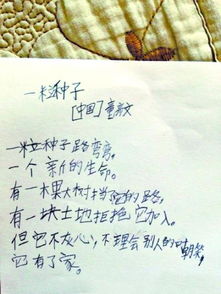 一粒种子
[中国]童文
一粒种子路弯弯。
一个新的生命。
有一棵大树挡它的路,
有一块土地拒绝它加入。
但它不灰心,不理会别人的嘲笑,
它有了家。